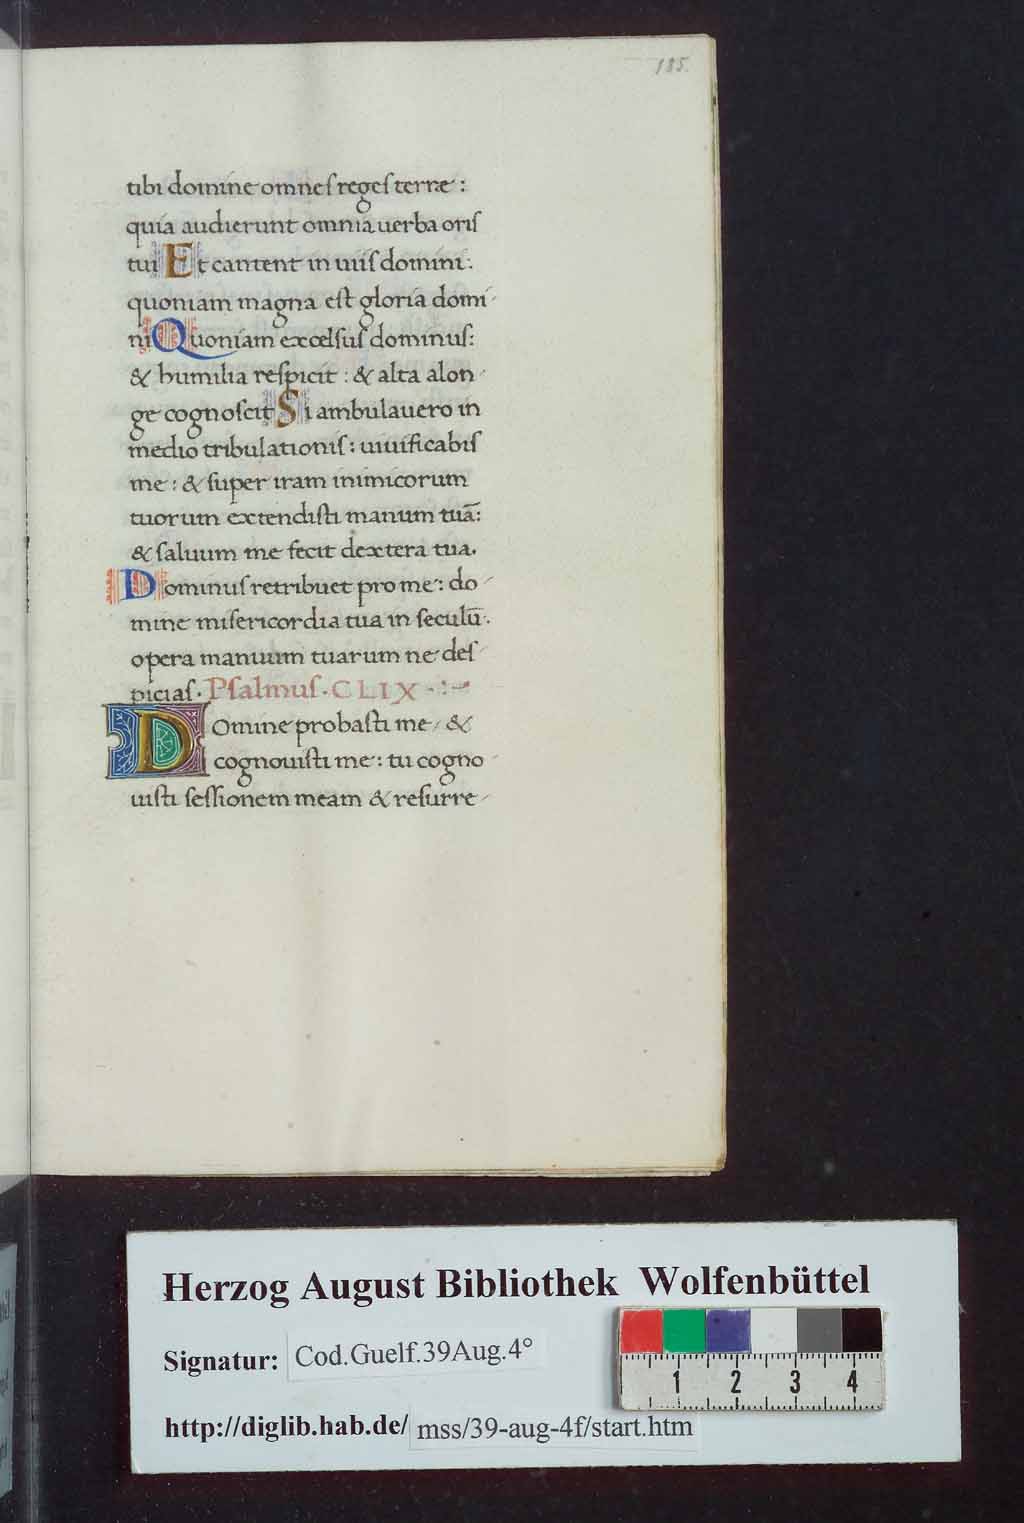 185.
tibi domine omnes reges terræ:
quia audierunt omnia uerba oris
tui Et cantent in uiis domini:
quoniam magna est gloria domi-
ni Quoniam excelsus dominus:
& humilia respicit: & alta alon-
ge cognoscit Si ambulauero in
medio tribulationis: uiuificabis
me: & super iram inimicorum
tuorum extendisti manum tuā:
& saluum me fecit dextera tua.
Dominus retribuet pro me: do-
mine misericordia tua in seculū:
opera manuum tuarum ne des-
picias. Psalmus. CLIX
Domine probasti me, &
cognouisti me: tu cogno-
uisti sessionem meam & resurre-
Herzog August Bibliothek Wolfenbüttel
Signatur: Cod.Guelf.39Aug.4°
1 2 3 4
http://diglib.hab.de/ mss/39-aug-4f/start.htm